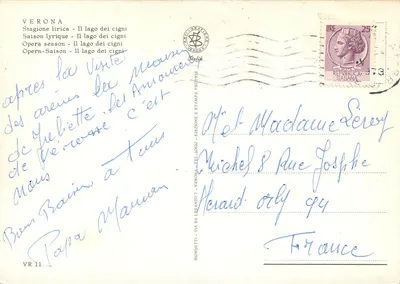 VERONA
Stagione lirica - Il lago dei cigni
Saison lyrique - Il lago dei cigni
Opera season - Il lago dei cigni
Opern-Saison - Il lago dei cigni
après la visite
des arènes la maison
de Juliette les Amoureux
de Vérone c'est
nous
Bons Baisers a tous
Papa Maman
VR 11
LIRE 25
73
Met Madame
Michel 8 Rue Josephe
Orly 94
France